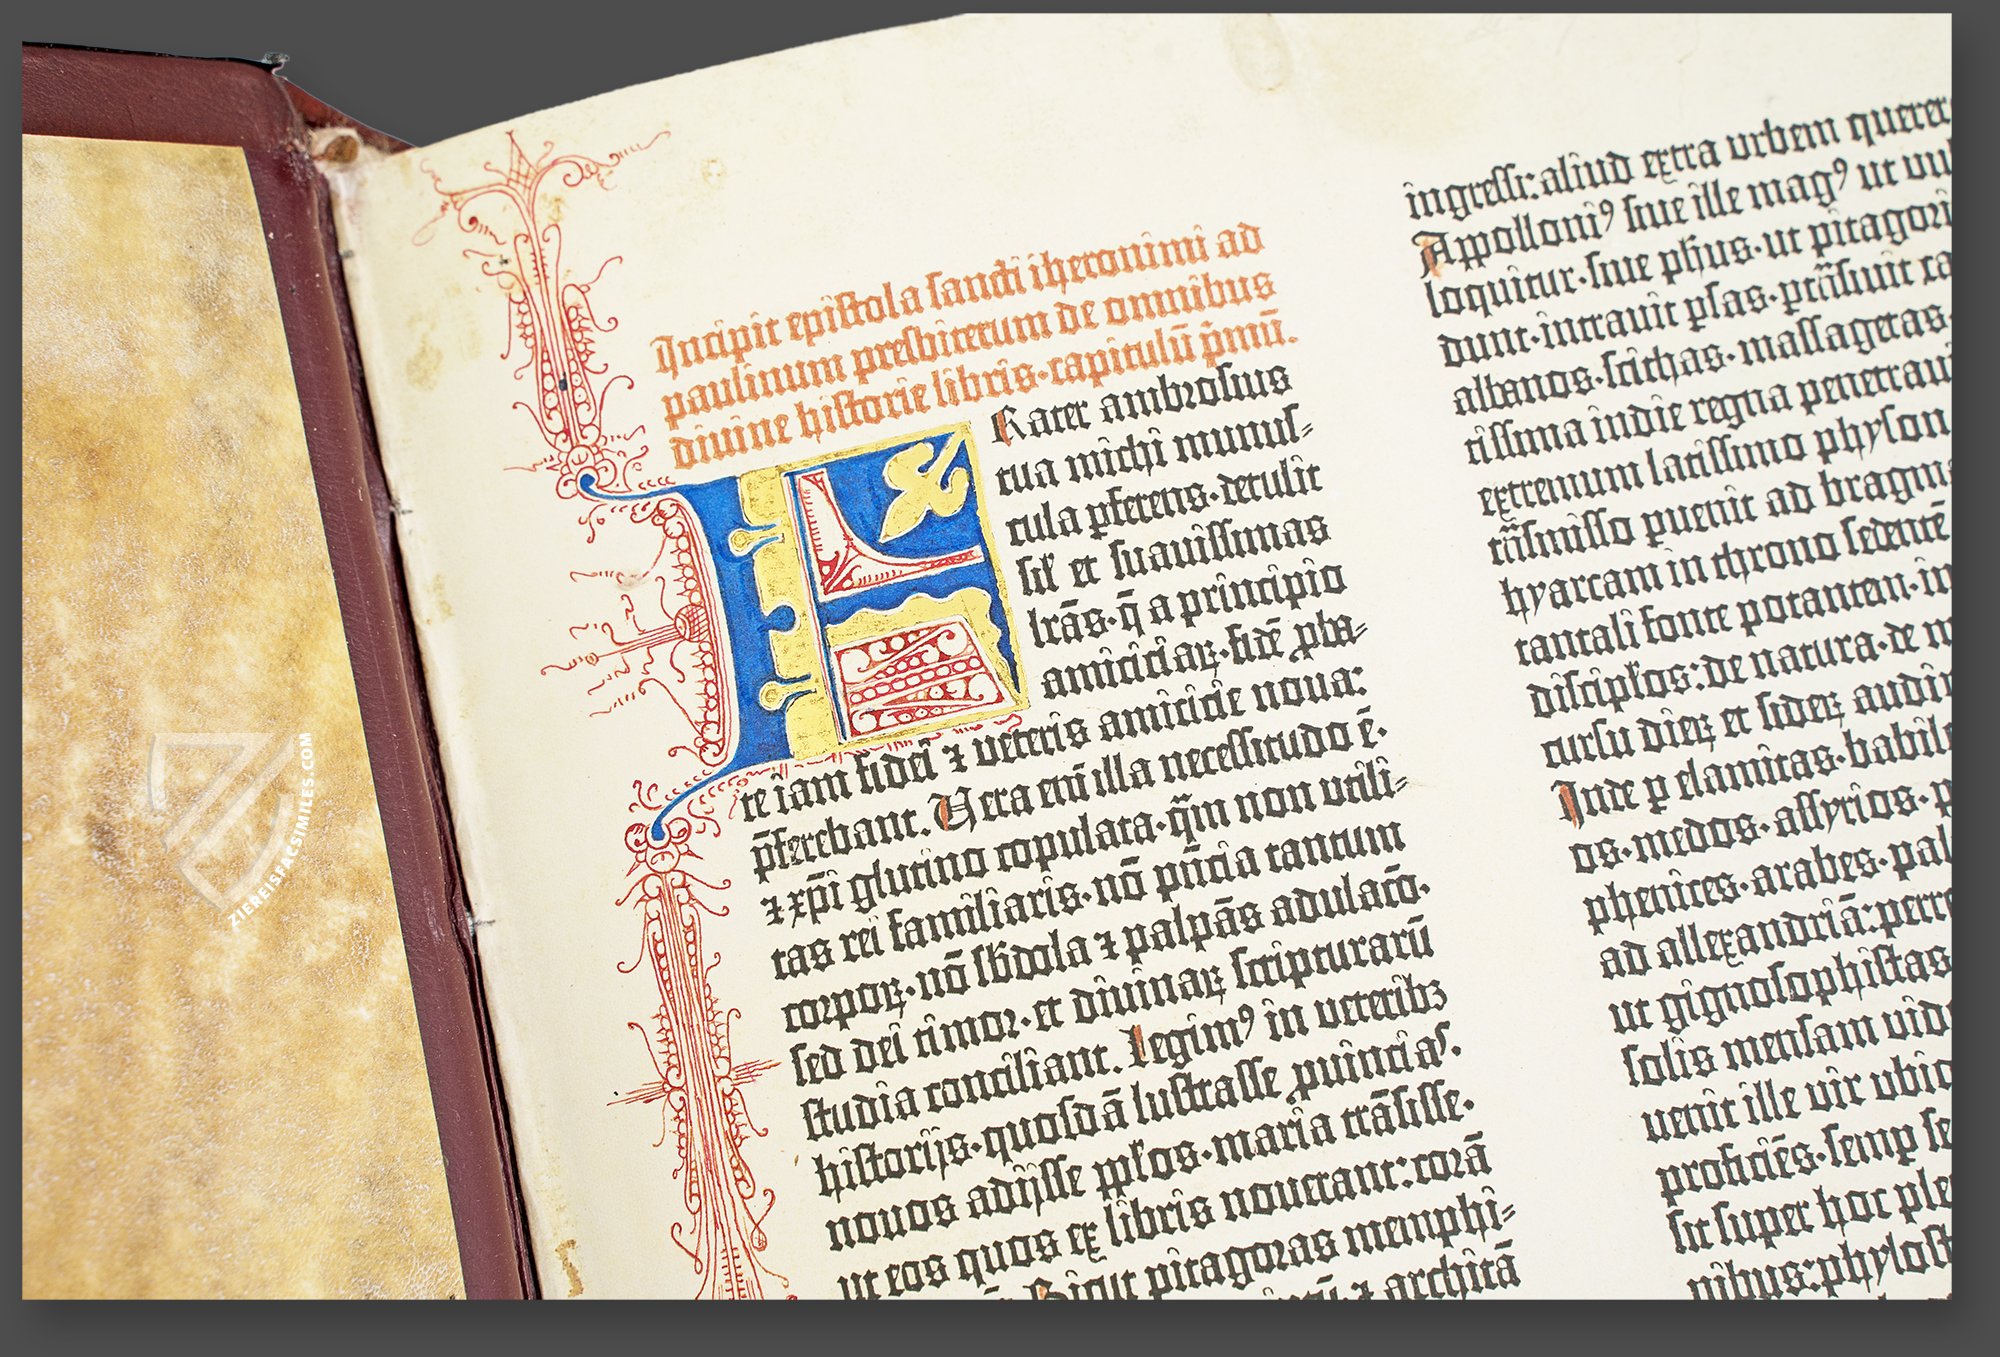 Incipit epistola sancti iheronimi ad
paulinum presbiterum de omnibus
divine historie libris·capitulū p̄mū.
Frater ambrosius
tua michi munus-
cula ꝑferens·detulit
sil̄ et suauissimas
lrās·q̄ a principio
amiciciaꝝ·fidē ꝓba-
te iam fidei ⁊ veteris amicicie noua:
p̄ferebant. Vera em̄ illa necessitudo ē·
⁊ xp̄i glutino copulata·q̄m non vtili-
tas rei familiaris·nō pn̄cia tantum
corpoꝝ·nō sb̄dola ⁊ palpās adulacō·
sed dei timor·et diuinaꝝ scripturarū
studia conciliant. Legimꝰ in veteribꝫ
historijs·quosdā lustrasse ꝓuincias·
nouos adijsse pp̄los·maria trāsisse·
ut eos quos ex libris nouerant:corā
Sicut pitagoras memphi-
⁊ architā
ingressi:aliud extra urbem querer
Apolloniꝰ siue ille magꝰ ut vul
loquitur·siue phūs·ut pitagori
dunt·intrauit ꝑsas·ptrāsiuit ca
albanos·scithas·massagetas·
tissima indie regna penetraui
extremum latissimo physon
trāsmisso puenit ad bragm
hyarcam in throno sedentē
tantali fonte potantem·in
discipl̄os:de natura·de m
cursu dieꝝ et sideꝝ audir
Inde ꝑ elamitas·babil
os·medos·assyrios·p
phenices·arabes·pal
ad allexandriā:perre
ut gignosophistas
solis mensam vid
uenit ille vir vbiq
proficiēs·semp se
sit super hoc ple
nibus:phylost
ZIEREISFACSIMILES.COM